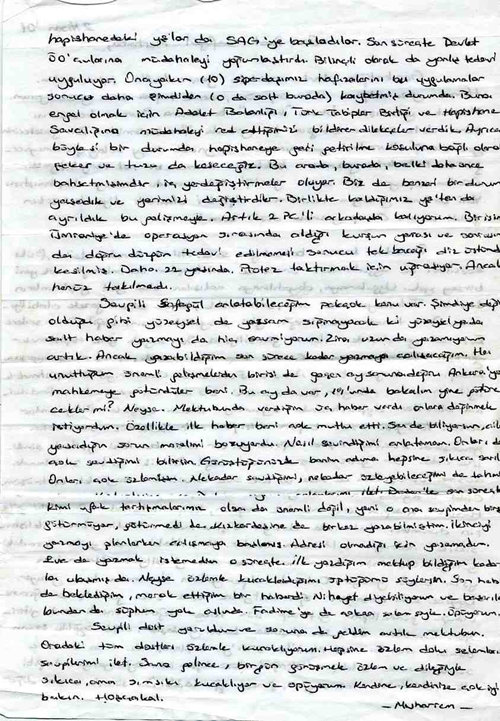 hapishanedeki yş'lar da SAG'ye başladılar. Son süreçte Devlet
ÖO'çularına müdahaleyi yoğunlaştırdı. Bilinçli olarak da yanlış tedavi
uyguluyor. Ona yakın (10) siperdaşımız hafızalarını bu uygulamalar
sonucu daha şimdiden (o da salt burada) kaybetmiş durumda. Buna
engel olmak için Adalet Bakanlığı, Türk Tabipler Birliği ve Hapishane
Savcılığına müdahaleyi red ettiğimizi bildiren dilekçeler verdik. Ayrıca
böylesi bir durumda hapishaneye geri getirilme koşuluna bağlı olarak
şeker ve tuzu da keseceğiz. Bu arada, burada, belki daha önce
bahsetmişimdir, iç yerdeğiştirmeler oluyor. Biz de benzeri bir durum
yaşadık ve yerimizi değiştirdiler. Birlikte kaldığımız yş'ten de
ayrıldık bu gelişmeyle. Artık 2 PC'li arkadaşla kalıyorum. Birisi
Ümraniye'de operasyon sırasında aldığı kurşun yarası ve sonrasın
da doğru düzgün tedavi edilmemesi sonucu tek bacağı diz üstünden
kesilmiş. Daha 22 yaşında. Protez taktırmak için uğraşıyor. Ancak
henüz takılmadı.
Sevgili Safagül anlatabileceğim pekçok konu var. Şimdiye değin
olduğu gibi yüzeysel de yazsam sığmayacak ki yüzeysel ya da
salt haber yazmayı da hiç sevmiyorum. Zira uzun da yazamıyorum
artık. Ancak yazabildiğim son sürece kadar yazmaya çalışacağım. Ha
unuttuğum önemli gelişmelerden birisi de geçen ay sonuna doğru Ankara'ya
mahkemeye götürdüler beni. Bu ay da var, 19'unda bakalım yine götüre
cekler mi? Neyse. Mektubunda verdiğin üç haber vardı onlara değinmek
istiyordum. Özellikle ilk haber beni çok mutlu etti. Sen de biliyorsun,
yaşadığın sorun moralimi bozuyordu. Nasıl sevindiğimi anlatamam. Onları da
çok sevdiğimi bilirsin. Görüştüğünüzde benim adıma hepsine sıkıca sarıl
Onları çok özlemişim. Nekadar sevdiğimi, nekadar özleyebileceğimi de tahmin
kimi ufak tartışmalarımız olsa da önemli değil, yani o ona sevgimden birşey
götürmüyor, götürmedi de. Kızkardeşine de birkez yazabilmiştim. İkinciyi
yazmayı planlarken çalışmaya başlamış. Adresi olmadığı için yazamadım.
Eve de yazmak istemedim o süreçte. İlk yazdığım mektup bildiğim kada-
rı ulaşmış da. Neyse özlemle kucakladığımı öptüğümü söylersin. Son haber
de beklediğim, merak ettiğim bir haberdi. Nihayet diyebiliyorum ve başarılı
bundan da şüphem yok aslında. Fadime'ye de çokça selam söyle. Öpüyorum.
Sevgili dost yoruldum ve sonuna da geldim artık mektubun.
Oradaki tüm dostları özlemle kucaklıyorum. Hepsine özlem dolu selamları
sevgilerimi ilet. Sana gelince, birgün görüşmek özlem ve dileğiyle
sıkıca, ama sımsıkı kucaklıyor ve öpüyorum. Kendine, kendinize çok iyi
bakın. Hoşçakal.
- Muharrem -